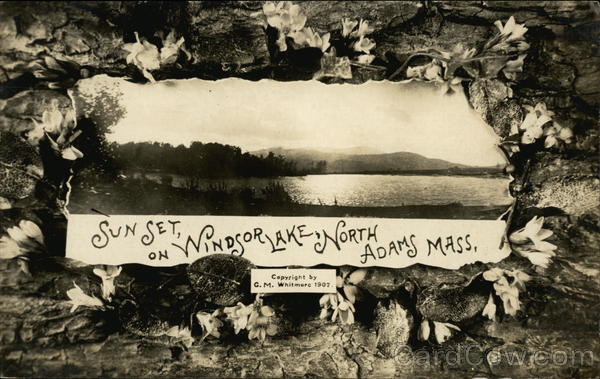 SUN SET,
ON WINDSOR LAKE, NORTH
ADAMS MASS.
Copyright by
G. M. Whitmore 1907.
CardCow.com